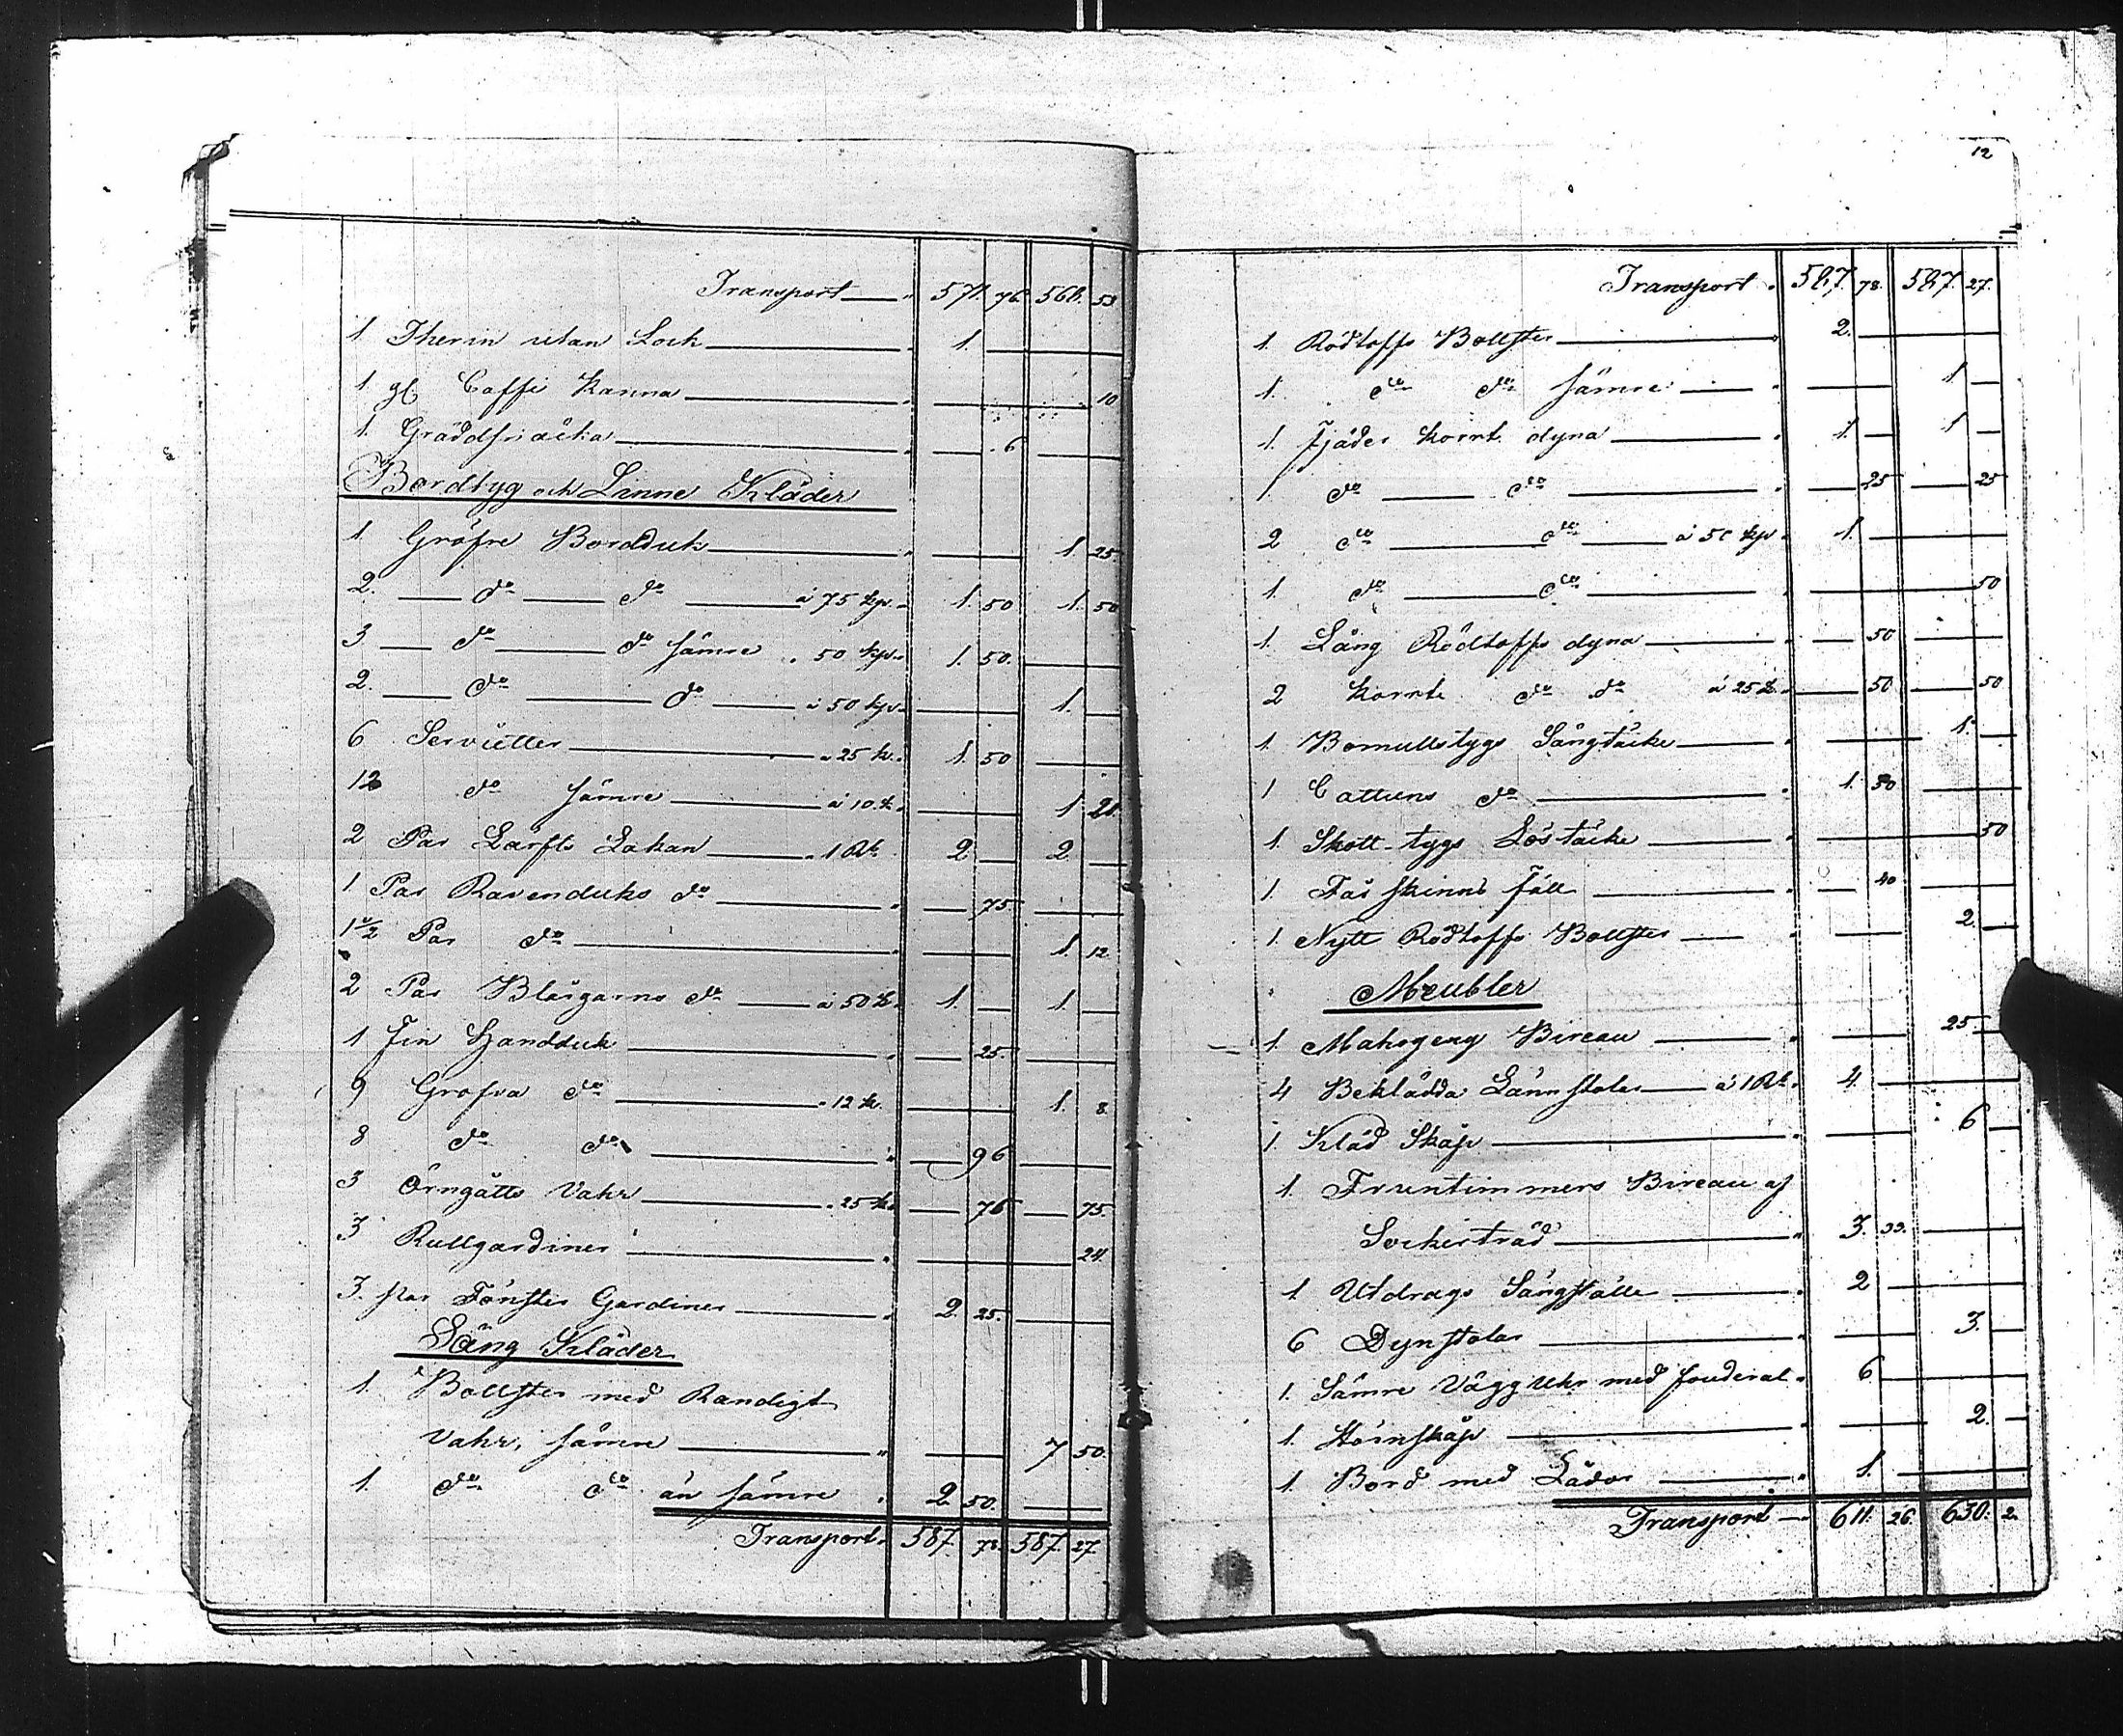 Transport — 571. 76. 568. 53
1 Therin utan Lock — 1.
1 gl Caffe Kanna — 10
1. Gräddsnäcka — 6
Bordtyg och Linne Kläder
1 Gröfre Bordduk — 1. 25.
2. do do à 75 kp. 1. 50 1. 50
3 do do sämre " 50 kp. 1. 50.
2. do do à 50 kp. 1.
6 Servietter à 25 k. 1. 50
12 do sämre à 10 k. 1 20.
2 Par Lärfts Lakan " 1 Rb. 2 2
1 Par Ravenduks do — 75
1 1/2 Par do — 1. 12.
2 Par Blårgarns do à 50 k. 1. 1.
1 Fin Handduk — 25.
9 Grofva do " 12 k. 1. 8.
8 do do — 96
3 Örngåtts Vahr " 25 k. 75 75.
3 Rullgardiner — 24.
3. par Fönster Gardiner — 2. 25.
Säng Kläder
1. Bollster med Randigt
Vahr, sämre — 7 50.
1. do do än sämre 2 50.
Transport. 587. 78. 587. 27.
12
Transport. 587. 78. 587. 27.
1. Rödtoffs Bollster — 2.
1. do do sämre — 1
1. Fjäder Kornt dyna — 1. 1
1 do do — 25 25
2 do do à 50 kp. 1.
1. do do — 50
1. Lång Rödtoffs dyna — 50
2 Kornte do do à 25 k. 50 50
1. Bomullstygs Sängtäcke — 1.
1 Cattuns do — 1. 50
1. Skott-tygs Löstäcke — 50
1. Får skinns fäll — 40
1. Nytt Rödtoffs Bollster — 2.
Meubler
1. Mahogeny Bireau — 25
4 Beklädda Lännstolar à 1 Rb. 4.
1. Kläd Skåp — 6
1. Fruntimmers Bireau af
Sockerträd — 3. 33.
1 Utdrags Sängställe — 2
6 Dynstolar — 3.
1. Sämre Vägg Uhr med fouderal. 6
1. Hörnskåp — 2.
1 Bord med Lådor — 1.
Transport — 611. 26 630. 2.